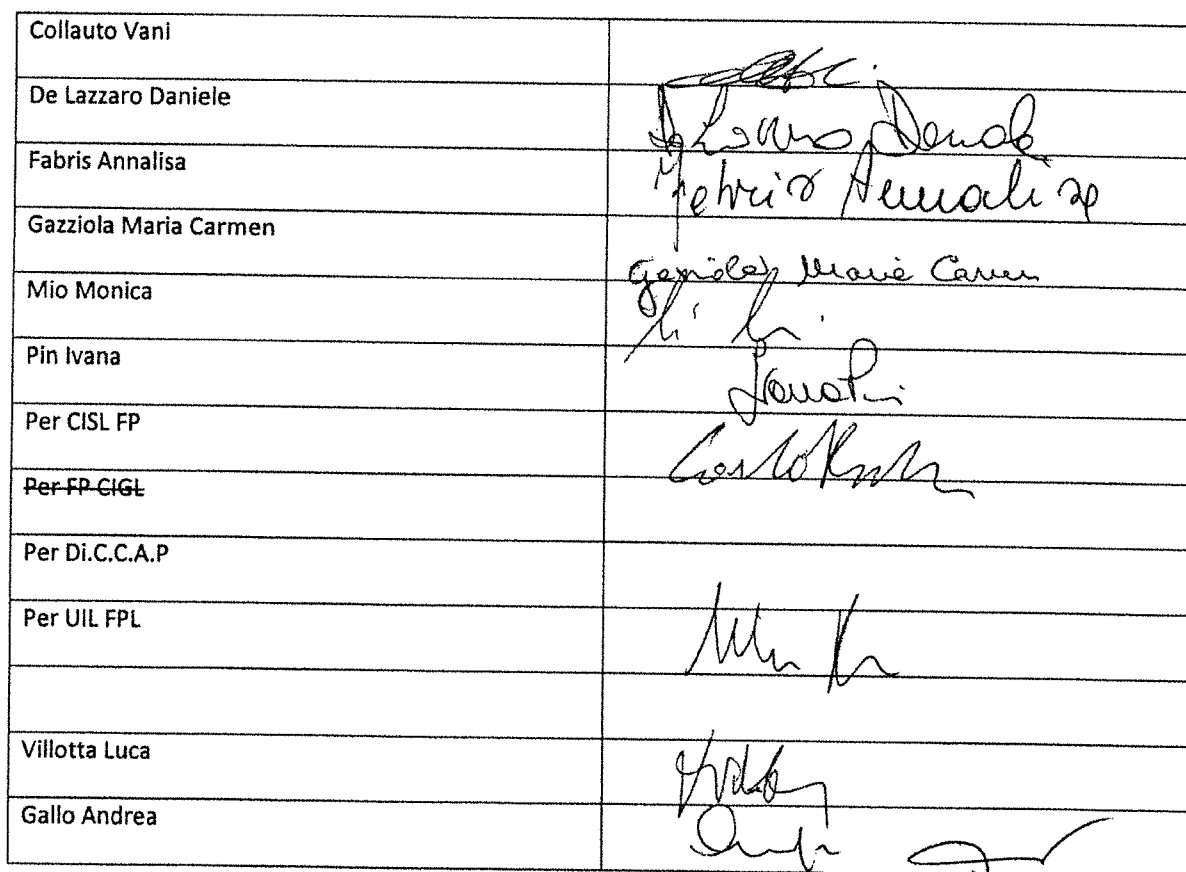 Collauto Vani
De Lazzaro Daniele
Fabris Annalisa
Fabris Annalisa
Gazziola Maria Carmen
Gazziola Maria Carmen
Mio Monica
Pin Ivana
Ivana Pin
Per CISL FP
Per FP CIGL
Per Di.C.C.A.P
Per UIL FPL
Villotta Luca
Gallo Andrea